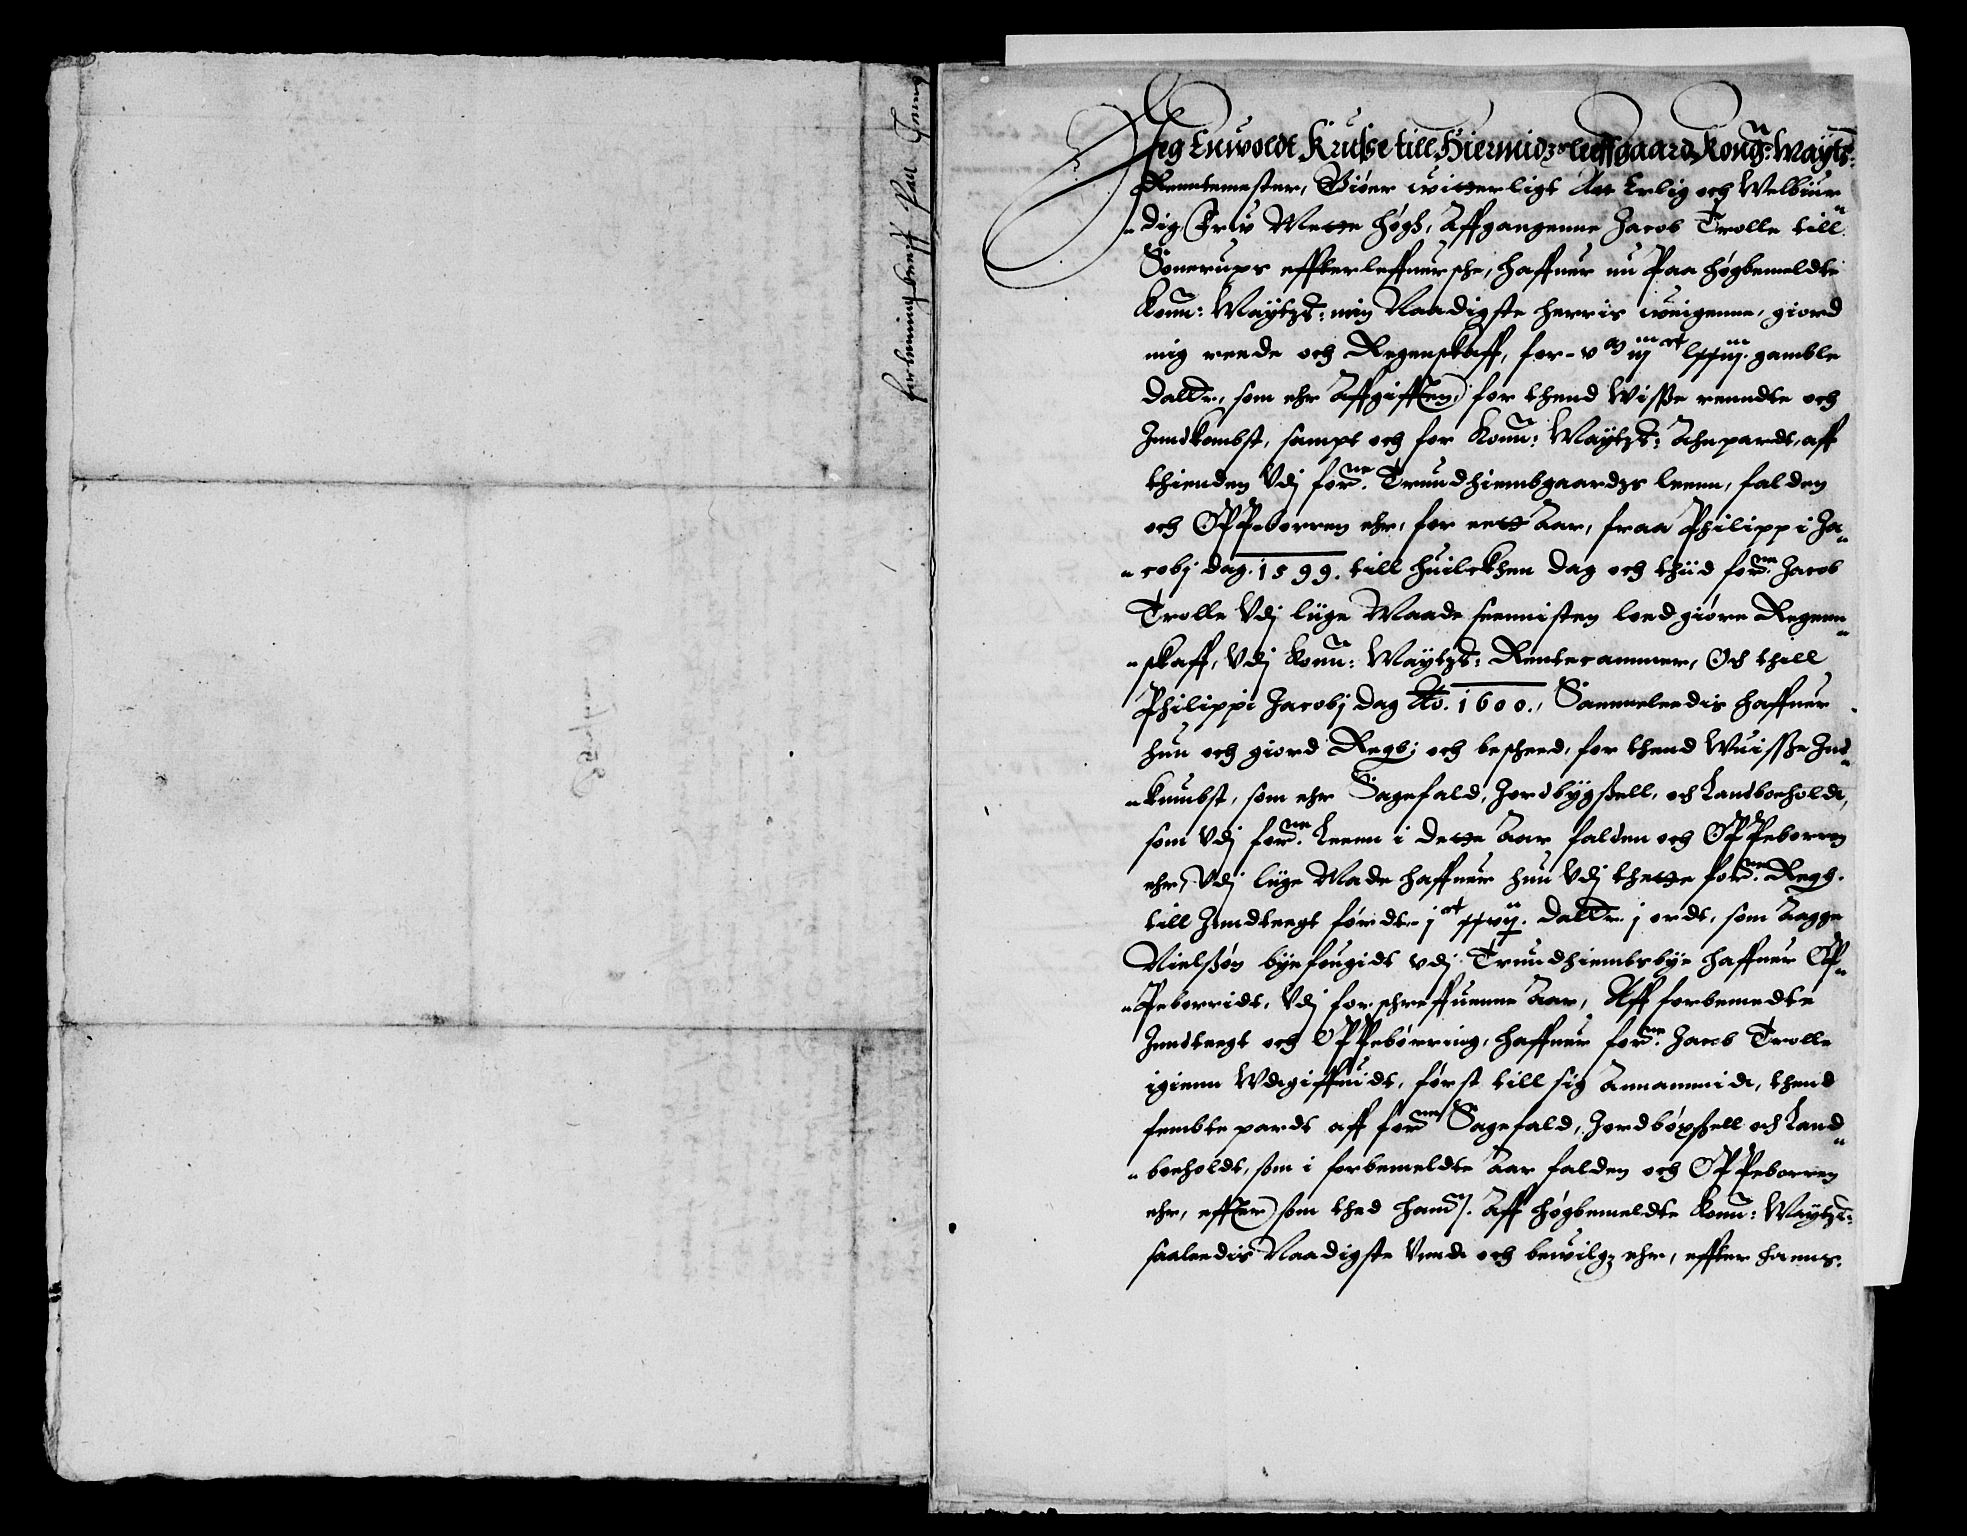 forlenning breff paa
Jeg Enwoldt Krusse till Hiermidzleffgaard Kong: Maytz:
Renntemester, Giöer witterligt Att Erlig och Welbiur„
„dig Frw Mette Høgs, Affgangenne Jacob Trolle till
Sonerups effterleffuersche, haffuer nu paa høgbemeldte
Konn: Maytzs: min Naadigste herris weigenne, giord
mig reede och Regenskaff, for - v m iij ct lxxiij. gamble
dallr, som ehr Affgifften, for thend Wisse renndte och
Inndkombst, sampt och for Konn: Maytzs: Anpardt, aff
thienden Vdj forne. Trundhiembgaardzs leenn, falden
och Oppeborren ehr, for eett Aar, fraa Philippi Ja„
„cobj dag. 1599. till huilckhen dag och thiid forne. Jacob
Trolle Vdj liige Maade seennisten loed giöre Regenn„
„skaff, Vdj Konn: Maytzs: Rentecammer, Och thill
Philippi Jacobj dag Ao. 1600., Sammeleedis haffuer
hun och giord Regsk och bescheed, for thend Wuisse Ind„
„kumbst, som ehr Sagefald, Jordbygsell, och Landboeholdt,
som Vdj forne. Leenn i dette Aar falden och Oppeborren
ehr, Vdj liige Made haffuer hun Vdj thette forne. Regsk.
till Inndtegt førdt - j ct xxvij. dallr. j ordt, som Aagge
Nielssøn byefougidt vdj Trundhiembsbye haffuer Op„
„peborridt, Vdj forschreffuenne Aar, Aff forbemedte
Inndtegt och Oppebørring, haffuer forne. Jacob Trolle
igienn Wdgiffuidt, først till sig Annammidt, thend
fembte pardt aff forne Sagefald, Jordbøxsell och Land„
„boeholdt, som i forbemeldte Aar falden och Oppeborren
ehr, effter som thed hannom. Aff høgbemeldte Konn: Maytzs:
saaleedis Naadigste Vndt och bewilget ehr, effter hanns.